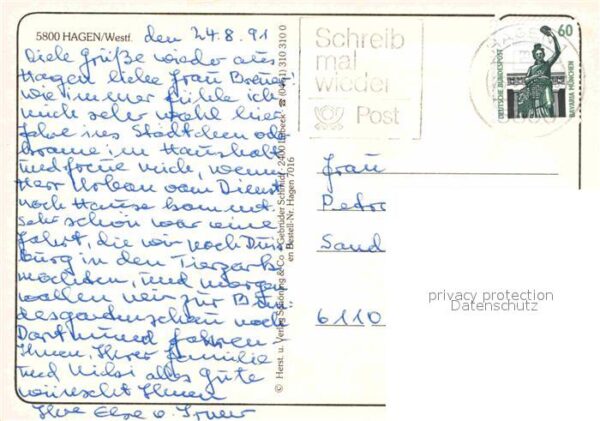 5800 HAGEN/Westf. den 24.8.91
Viele Grüße wieder aus
Hagen liebe Frau
wie immer fühle ich
mich sehr wohl hier
fahre ins Städtchen od.
im Haushalt
und freue mich, wenn
Herr Urban vom Dienst
nach Hause kommt.
sehr schön war eine
Fahrt, die wir nach Duis
burg in den Tierpark
machten, und morgen
wollen wir zur Bun
desgartenschau nach
Dortmund fahren.
Ihnen, Ihrer Familie
und alles Gute
wünscht Ihnen
Ihre Else
© Herst. u. Verlag Schöning & Co + Gebrüder Schmidt · 2400 Lübeck · ☎ (0451) 310 310 0
en Bestell-Nr. Hagen 7016
Schreib
mal
wieder
Post
60
DEUTSCHE BUNDESPOST
BAVARIA MÜNCHEN
Frau
Petra
Sand
6110
privacy protection
Datenschutz